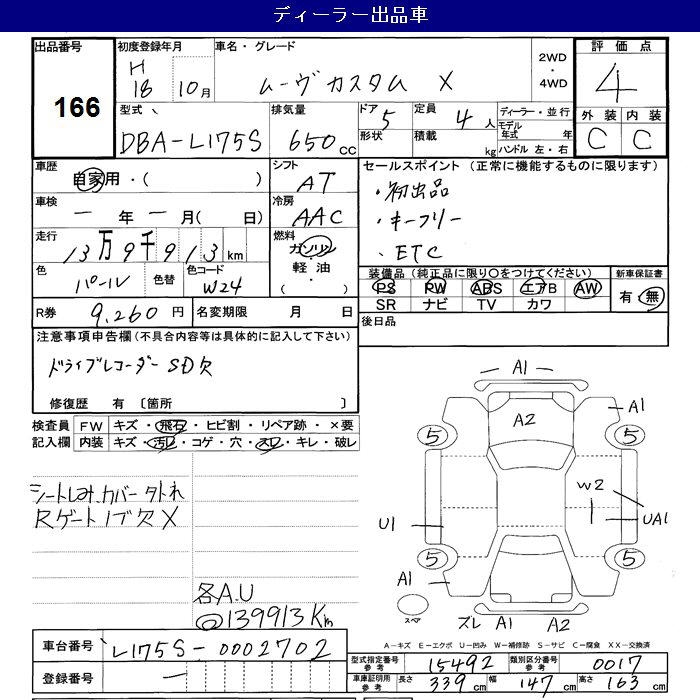 ディーラー出品車
出品番号 166
初度登録年月 H18 10月
車名・グレード ムーヴカスタム X
2WD・4WD
評価点 4
外装 C 内装 C
型式 DBA-L175S
排気量 650cc
ドア 5 形状
定員 4人 積載 kg
ディーラー・並行
モデル年式 年
ハンドル 左・右
車歴 自家用・( )
シフト AT
セールスポイント(正常に機能するものに限ります)
・初出品
・キーフリー
・ETC
車検 ー年ー月( 日)
冷房 AAC
走行 13万9千913km
燃料 ガソリン・軽油・( )
色 パール 色替 色コード W24
装備品(純正品に限り〇をつけてください)
PS PW ABS エアB AW
SR ナビ TV カワ
新車保証書 有・無
R券 9,260円 名変期限 月 日
後日品
注意事項申告欄(不具合内容等は具体的に記入して下さい)
ドライブレコーダー SD欠
修復歴 有 〔箇所 〕
検査員記入欄
FW キズ・飛石・ヒビ割・リペア跡・×要
内装 キズ・汚レ・コゲ・穴・スレ・キレ・破レ
シートしみ カバー外れ
Rゲートノブ欠X
各A.U
139913Km
A1
A2
A1
5 5
W2
U1 UA1
5 5
A1
スペア ズレ A1 A2
A-キズ E-エクボ U-凹み W-補修跡 S-サビ C-腐食 XX-交換済
車台番号 L175S-0002702
登録番号 ー
型式指定番号 参考 15492 類別区分番号 参考 0017
車庫証明用 参考 長さ 339cm 幅 147cm 高さ 163cm